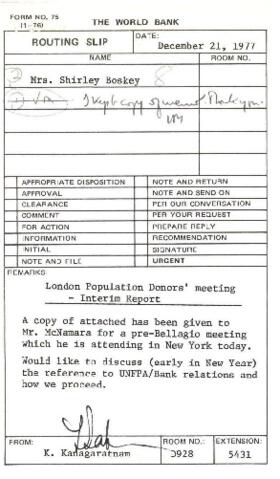 FORM NO. 75
(1-76)
THE WORLD BANK
ROUTING SLIP
DATE:
December 21, 1977
NAME
ROOM NO.
Mrs. Shirley Boskey
I kept copy of
APPROPRIATE DISPOSITION NOTE AND RETURN
APPROVAL NOTE AND SEND ON
CLEARANCE PER OUR CONVERSATION
COMMENT PER YOUR REQUEST
FOR ACTION PREPARE REPLY
INFORMATION RECOMMENDATION
INITIAL SIGNATURE
NOTE AND FILE URGENT
REMARKS
London Population Donors' meeting
- Interim Report
A copy of attached has been given to
Mr. McNamara for a pre-Bellagio meeting
which he is attending in New York today.
Would like to discuss (early in New Year)
the reference to UNFPA/Bank relations and
how we proceed.
FROM:
K. Kanagaratnam
ROOM NO.:
D928
EXTENSION:
5431